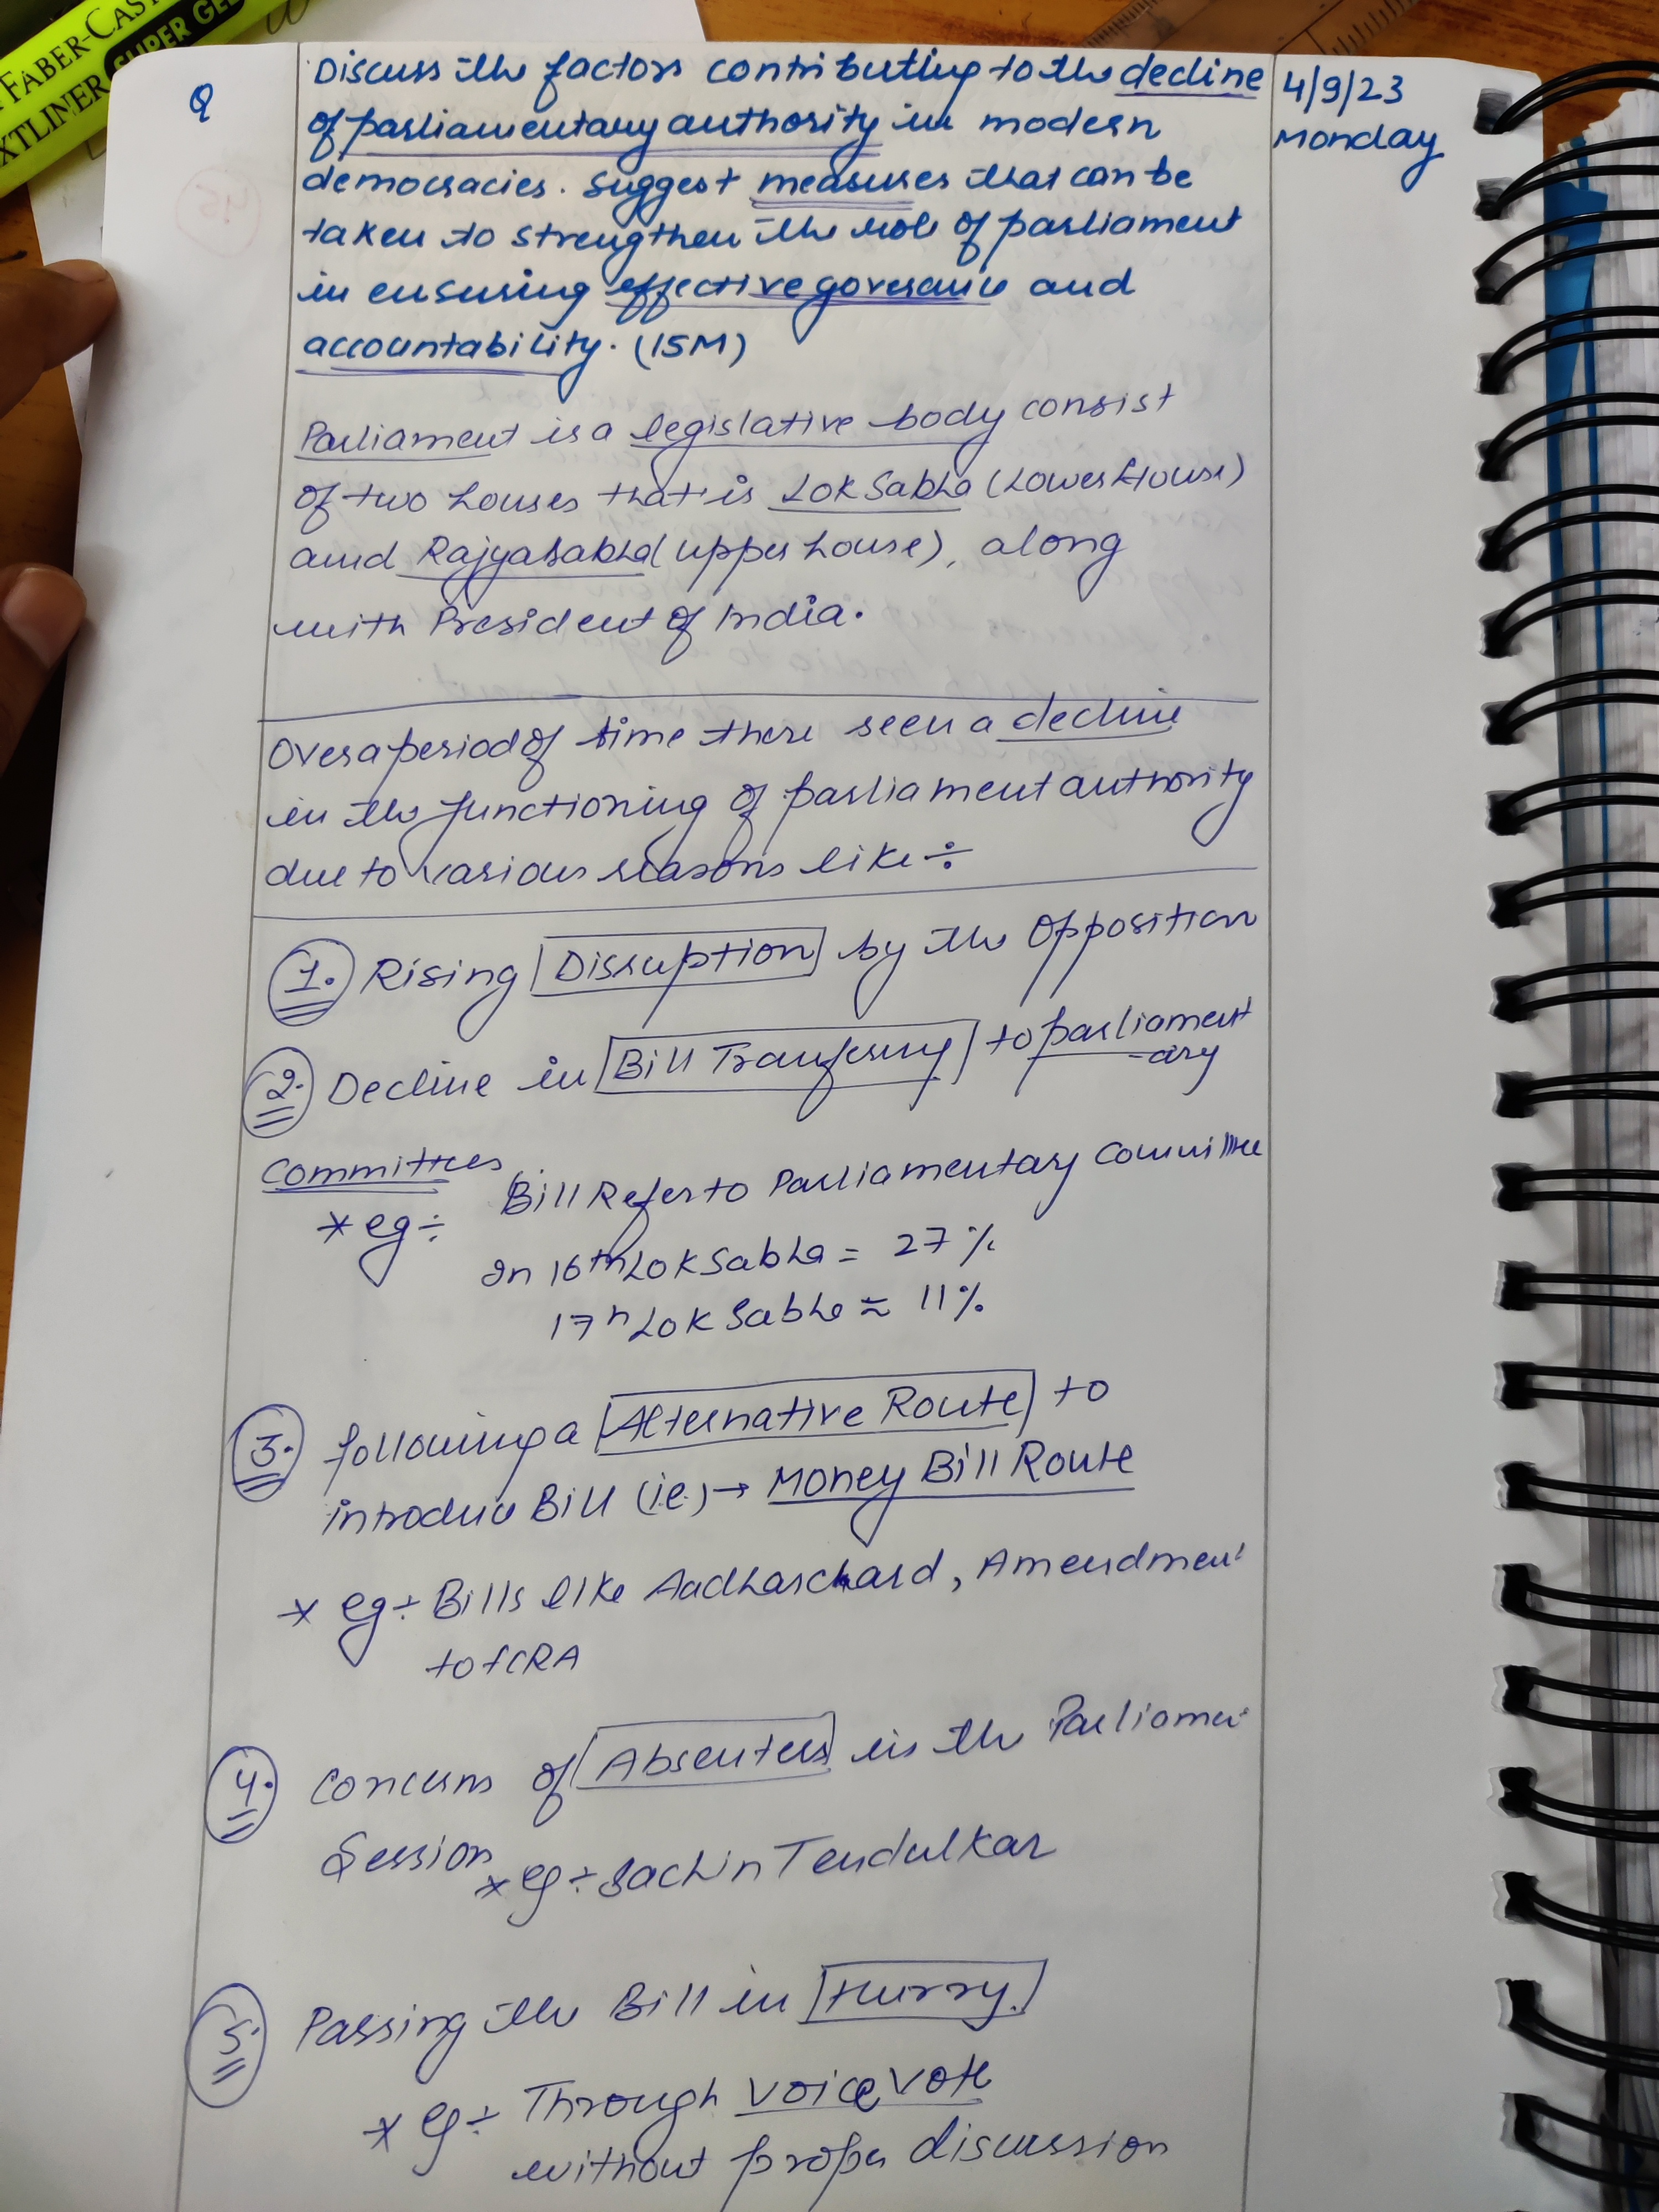 FABER-CAST
SUPER GEL
EXTLINER
Q
Discuss the factors contributing to the decline
of parliamentary authority in modern
democracies. Suggest measures that can be
taken to strengthen the role of parliament
in ensuring effective goverance and
accountability. (15M)
4/9/23
Monday
Parliament is a legislative body consist
of two houses that is Lok Sabha (Lower House)
and Rajyasabha (upper house), along
with President of India.
Over a period of time there seen a decline
in the functioning of parliament authority
due to various reasons like ÷
1. Rising Disruption by the Opposition
2. Decline in Bill Tranfering to parliament
-ary
Committees
* eg ÷ Bill Refer to Parliamentary Committee
In 16th Lok Sabha = 27 %
17th Lok Sabha = 11%
3. following a Alternative Route to
introduce Bill (i.e.) → Money Bill Route
* eg ÷ Bills like Aadharchard, Amendment
to FCRA
4. Concerns of Absentees in the Parliament
Session
* eg ÷ Sachin Tendulkar
5. Passing the Bill in Hurry.
* eg ÷ Through voice vote
without proper discussion